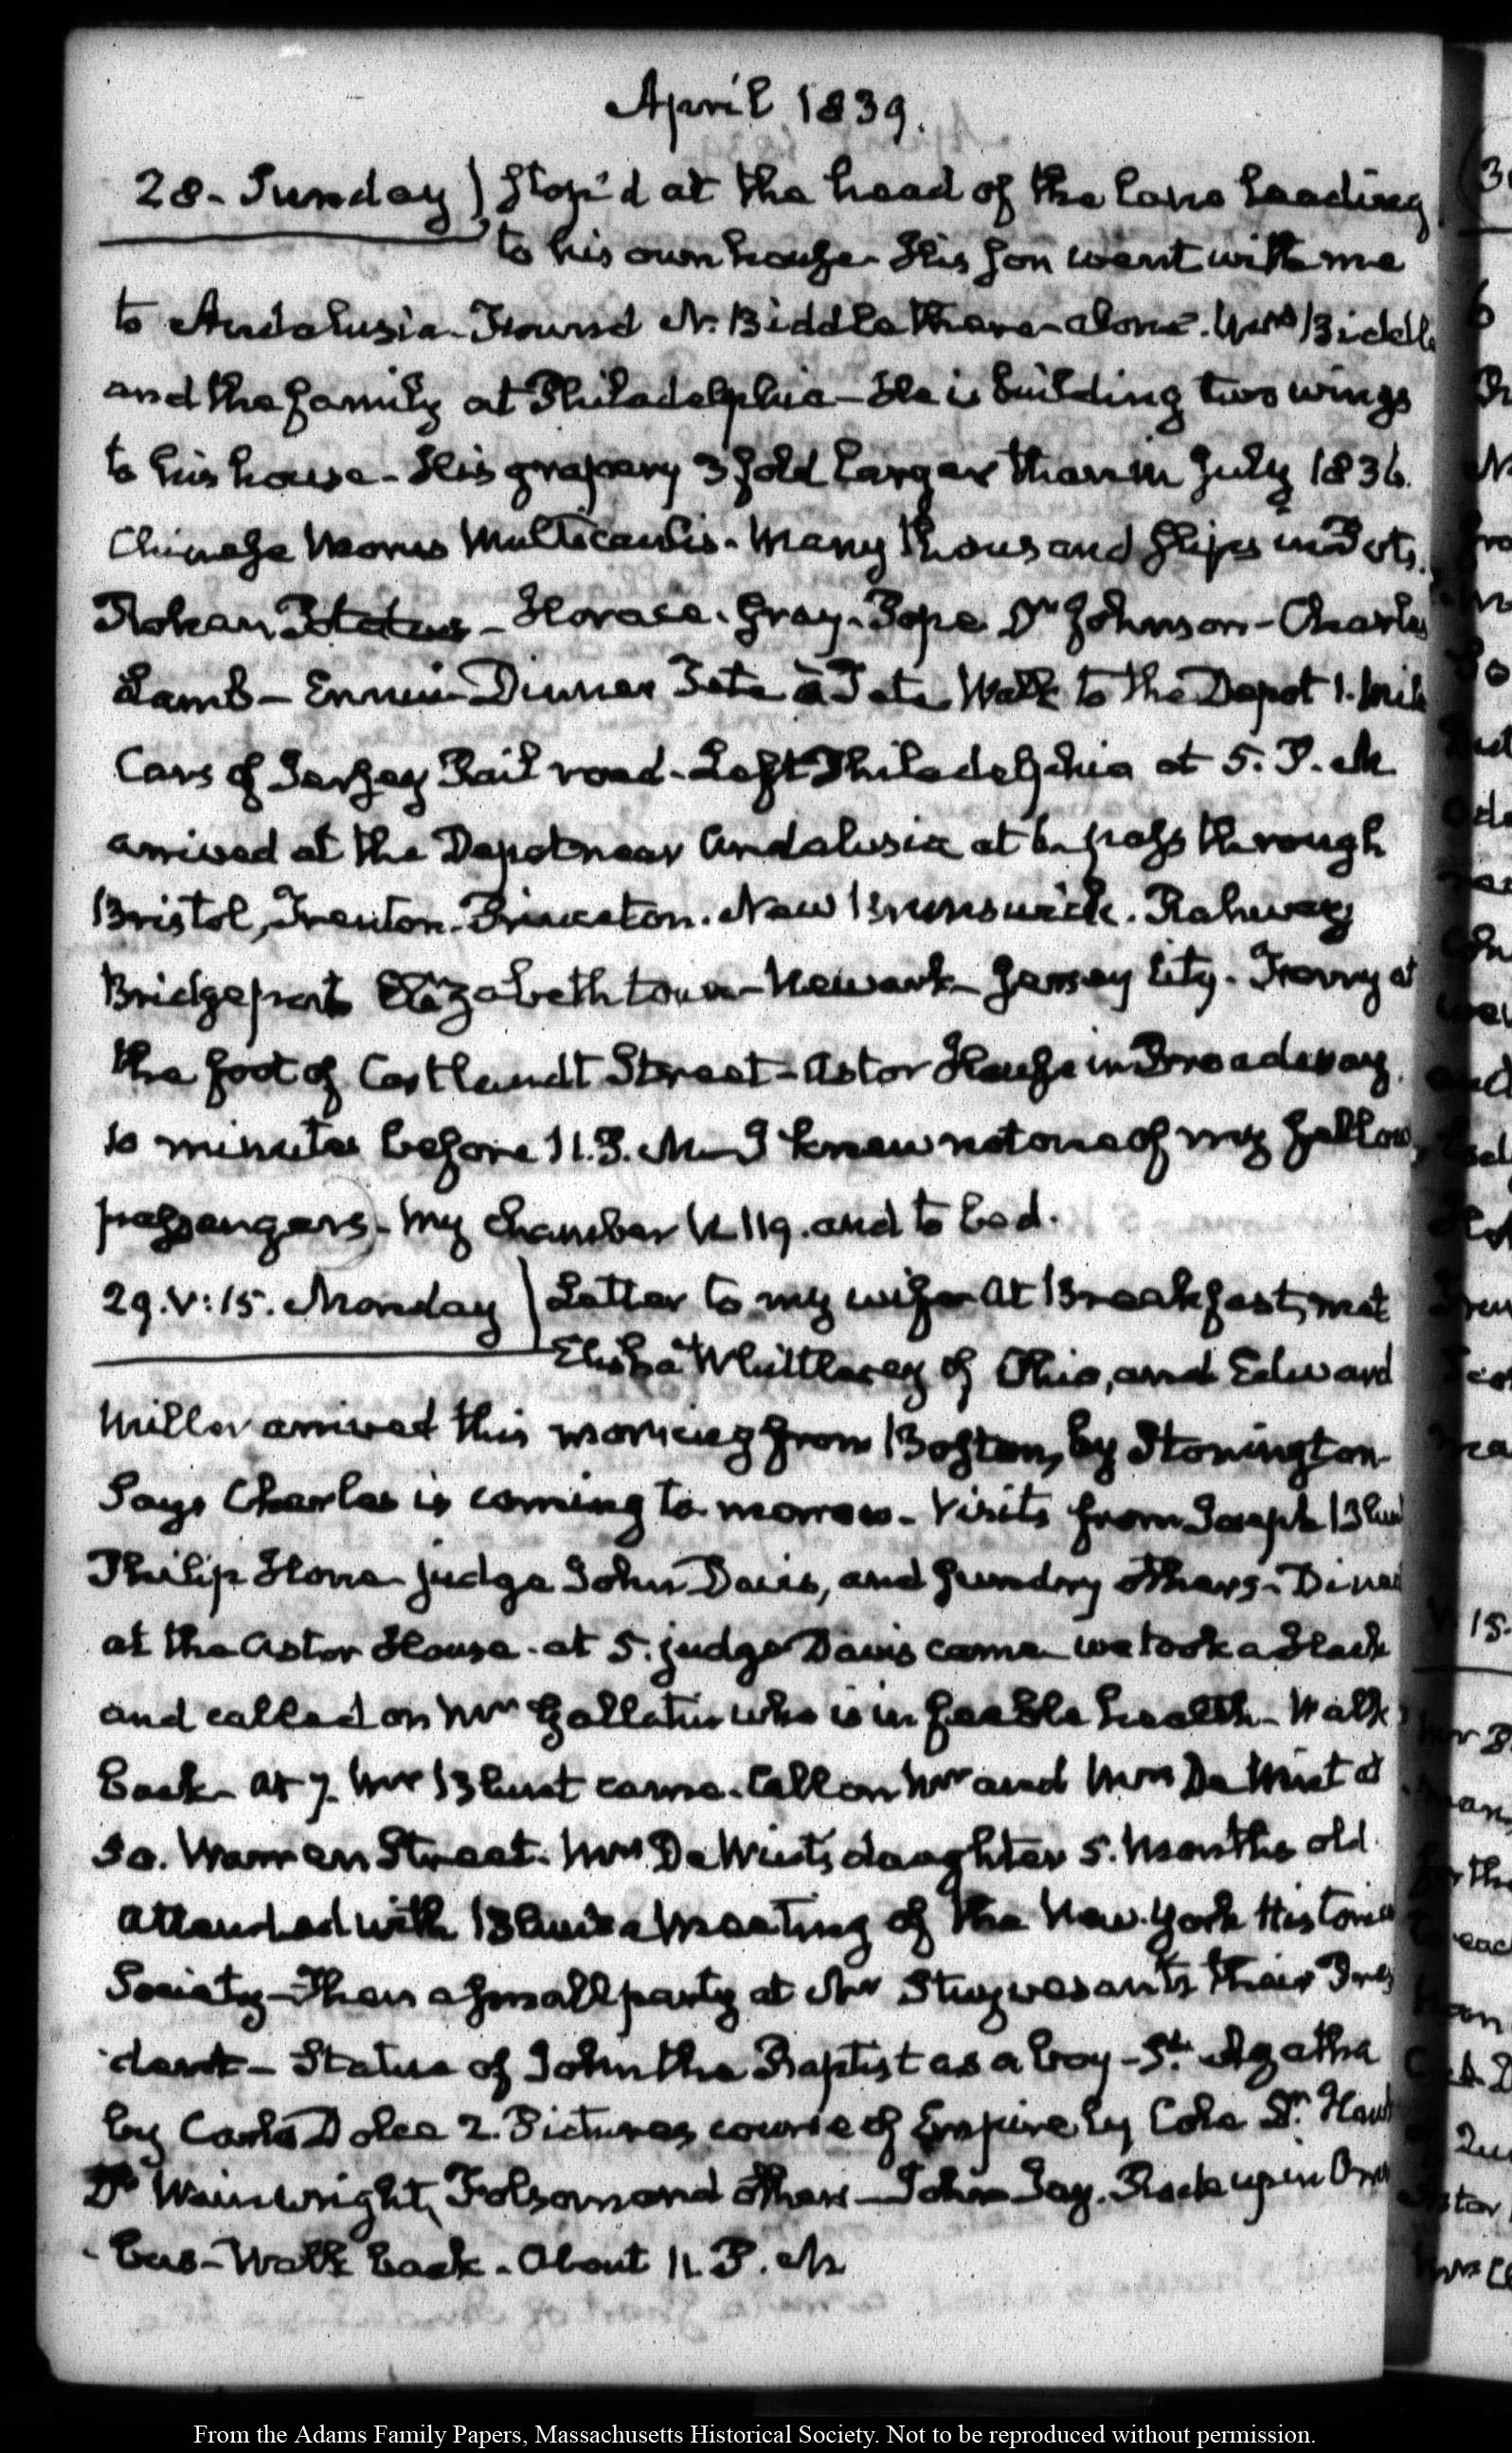 April 1839.
28. Sunday) stop'd at the head of the lane leading
to his own house. His son went with me
to Andalusia. Found N. Biddle there alone. Mrs Biddle
and the family at Philadelphia – He is building two wings
to his house. His grapery 3 fold larger than in July 1836.
Chinese Morus Multicaulis. Many thousand slips in Pots.
Rohan Potatoes – Horace. Gray. Pope Dr Johnson – Charles
Lamb – Ennui – Dinner Tete à Tete. Walk to the Depot 1. Mile
Cars of Jersey Rail road. Left Philadelphia at 5. P.M.
arrived at the Depot near Andalusia at 6. pass through
Bristol, Trenton. Princeton. New Brunswick. Rahway
Bridgeport Elizabethtown – Newark – Jersey City. Ferry at
the foot of Cortlandt Street – Astor House in Broadway.
10 minutes before 11. P.M. I knew not one of my fellow
passengers – My chamber N. 119. and to bed.
29. V:15. Monday) Letter to my wife at Breakfast, met
Elisha Whittlesey of Ohio, and Edward
Miller arrived this morning from Boston, by Stonington
Says Charles is coming to morrow – Visits from Joseph Blunt
Philip Hone judge John Davis, and sundry others. Dined
at the Astor House. at 5. judge Davis came we took a Hack
and called on Mr Gallatin who is in feeble health – Walk
back – at 7. Mr Blunt came. Call on Mr and Mrs De Wint at
30. Warren Street. Mrs De Wint's daughter 5. Months old
attended with Blunt a meeting of the New-York Historical
Society – Then a small party at Mr Stuyvesant's their Presi
dent – Statue of John the Baptist as a boy – St. Agatha
by Carlo Dolce 2. Pictures course of Empire by Cole Dr.
Dr Wainwright, Folsom and others – John Jay. Back up in Omni
bus – Walk back. About 11. P.M.
From the Adams Family Papers, Massachusetts Historical Society. Not to be reproduced without permission.